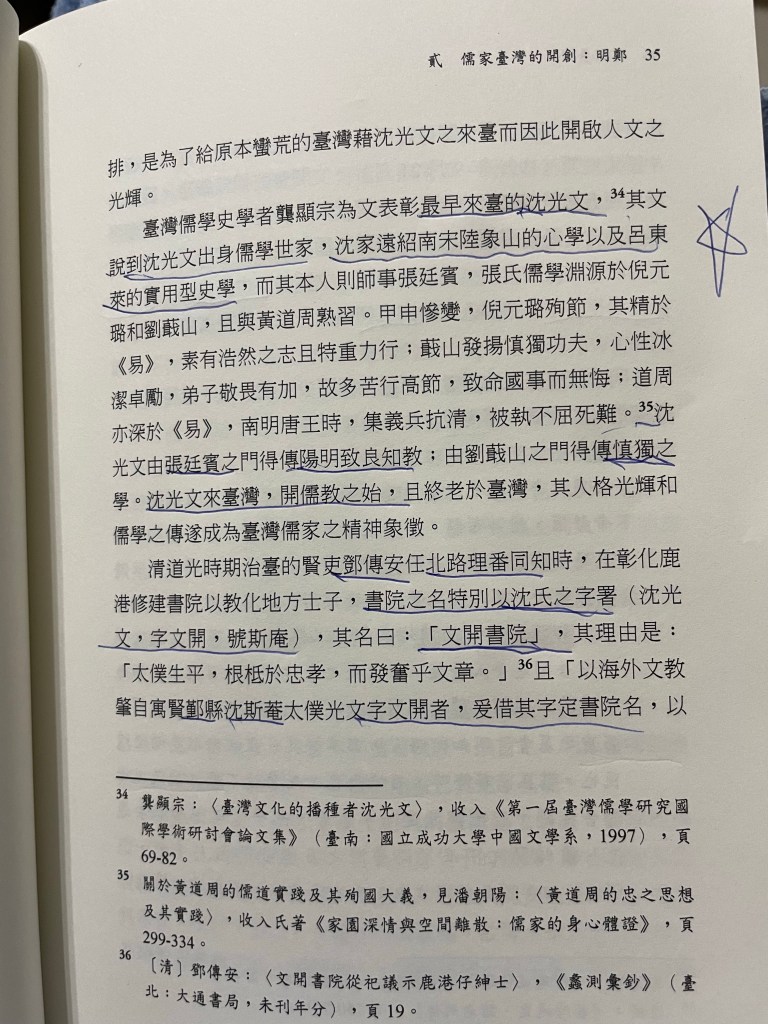 貳　儒家臺灣的開創：明鄭　35
排，是為了給原本蠻荒的臺灣藉沈光文之來臺而因此開啟人文之
光輝。
臺灣儒學史學者龔顯宗為文表彰最早來臺的沈光文，34其文
說到沈光文出身儒學世家，沈家遠紹南宋陸象山的心學以及呂東
萊的實用型史學，而其本人則師事張廷賓，張氏儒學淵源於倪元
璐和劉蕺山，且與黃道周熟習。甲申慘變，倪元璐殉節，其精於
《易》，素有浩然之志且特重力行；蕺山發揚慎獨功夫，心性冰
潔卓勵，弟子敬畏有加，故多苦行高節，致命國事而無悔；道周
亦深於《易》，南明唐王時，集義兵抗清，被執不屈死難。35沈
光文由張廷賓之門得傳陽明致良知教；由劉蕺山之門得傳慎獨之
學。沈光文來臺灣，開儒教之始，且終老於臺灣，其人格光輝和
儒學之傳遂成為臺灣儒家之精神象徵。
清道光時期治臺的賢吏鄧傳安任北路理番同知時，在彰化鹿
港修建書院以教化地方士子，書院之名特別以沈氏之字署（沈光
文，字文開，號斯庵），其名曰：「文開書院」，其理由是：
「太僕生平，根柢於忠孝，而發奮乎文章。」36且「以海外文教
肇自寓賢鄞縣沈斯菴太僕光文字文開者，爰借其字定書院名，以
34 龔顯宗：〈臺灣文化的播種者沈光文〉，收入《第一屆臺灣儒學研究國
際學術研討會論文集》（臺南：國立成功大學中國文學系，1997），頁
69-82。
35 關於黃道周的儒道實踐及其殉國大義，見潘朝陽：〈黃道周的忠之思想
及其實踐〉，收入氏著《家園深情與空間離散：儒家的身心體證》，頁
299-334。
36 〔清〕鄧傳安：〈文開書院從祀議示鹿港仔紳士〉，《蠡測彙鈔》（臺
北：大通書局，未刊年分），頁19。